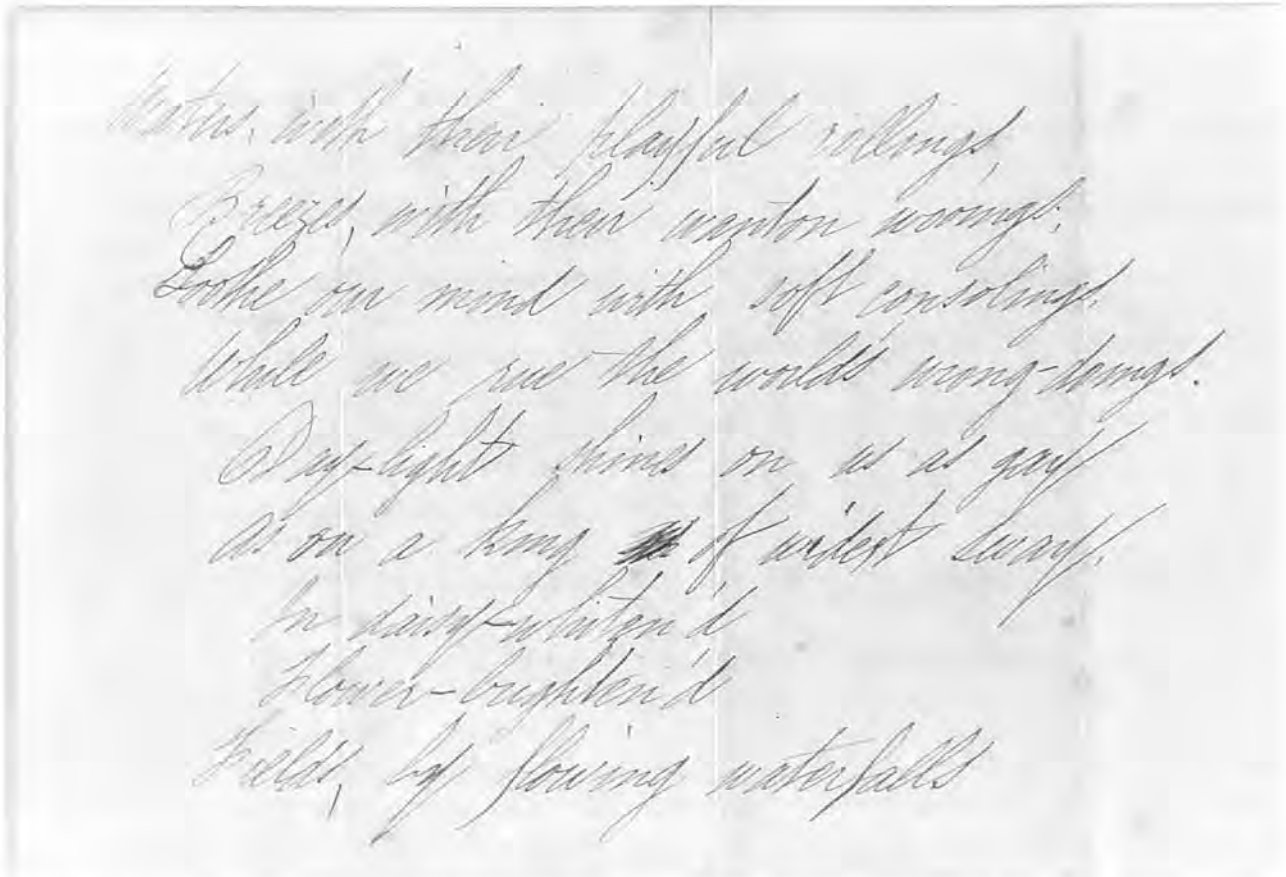 Waters, with their playful rollings,
Breezes, with their wanton wooings;
Soothe our mind with soft consolings,
While we rue the world's wrong-doings.
Day-light shines on us as gay
As on a king of widest sway,
In daisy-whiten'd
Flower-brighten'd
Fields, by flowing waterfalls